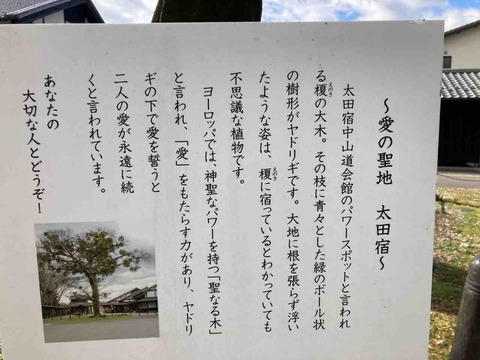 ～愛の聖地　太田宿～
太田宿中山道会館のパワースポットと言われ
る榎の大木。その枝に青々とした緑のボール状
の樹形がヤドリギです。大地に根を張らず浮い
たような姿は、榎に宿っているとわかっていても
不思議な植物です。
ヨーロッパでは、神聖なパワーを持つ「聖なる木」
と言われ、「愛」をもたらす力があり、ヤドリ
ギの下で愛を誓うと
二人の愛が永遠に続
くと言われています。
あなたの
大切な人とどうぞー